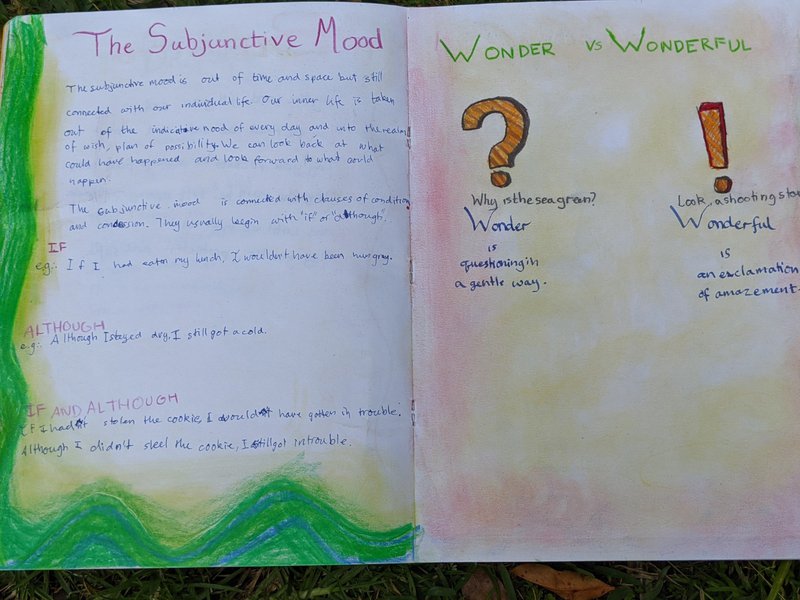 The Subjunctive Mood
The subjunctive mood is out of time and space but still
connected with our individual life. Our inner life is taken
out of the indicative mood of every day and into the realm
of wish, plan of possibility. We can look back at what
could have happened and look forward to what could
happen.
The subjunctive mood is connected with clauses of condition
and concession. They usually begin with "if" or "although".
IF
e.g.: If I had eaten my lunch, I wouldn't have been hungry.
ALTHOUGH
e.g.: Although I stayed dry, I still got a cold.
IF AND ALTHOUGH
If I hadn't stolen the cookie, I wouldn't have gotten in trouble.
Although I didn't steel the cookie, I still got in trouble.
WONDER VS WONDERFUL
?
Why is the sea green?
Wonder
is
questioning in
a gentle way.
!
Look, a shooting star
Wonderful
is
an exclamation
of amazement.